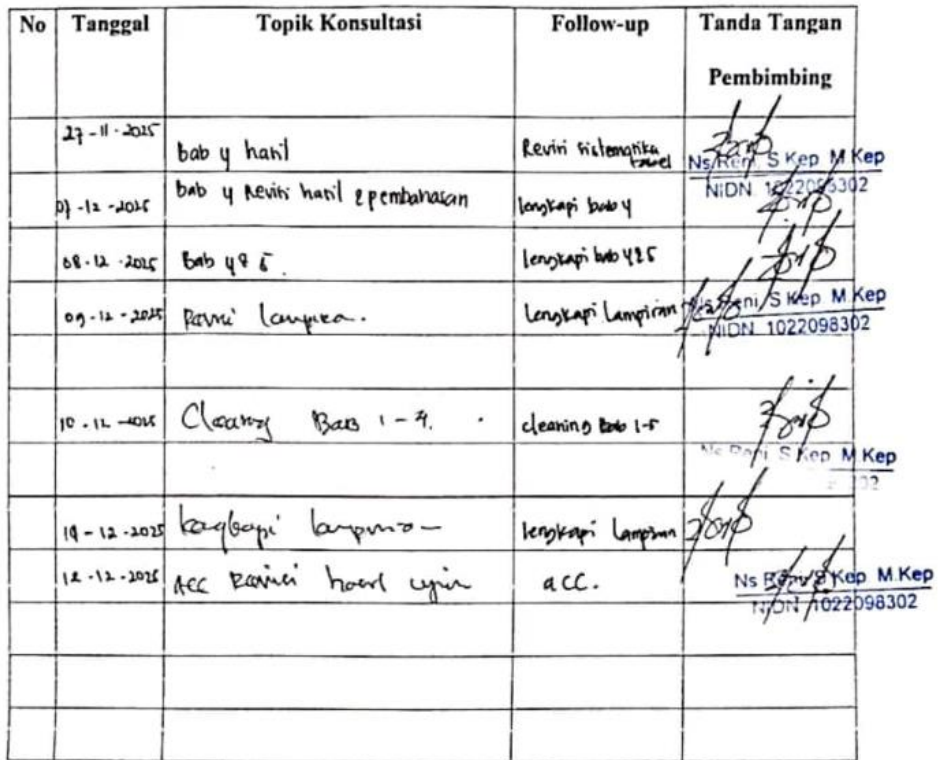 No Tanggal Topik Konsultasi Follow-up Tanda Tangan
Pembimbing
27-11-2025 bab 4 hasil Revisi sistematika tabel
Ns Reni, S Kep M Kep
NIDN 1022098302
bab 4 Revisi hasil & pembahasan lengkapi bab 4
08-12-2025 Bab 4 & 5 lengkapi bab 4 & 5
09-12-2025 Lengkapi Lampiran
Ns Reni, S Kep M.Kep
NIDN 1022098302
10-12-2025 Bab 1-4. cleaning Bab 1-5
Ns Reni S Kep M Kep
12-2025 lengkapi Lampiran
12-2025 acc hasil ujian acc.
Ns Reni S Kep M.Kep
NIDN 1022098302